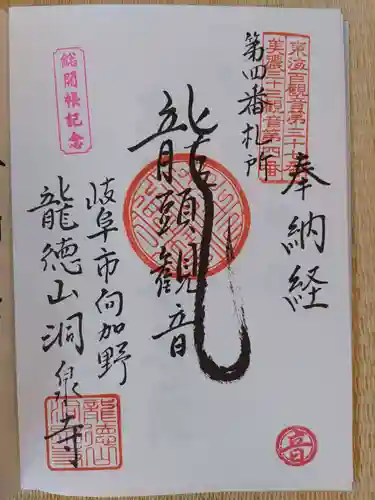 奉納経
東海百観音第三十七番
美濃三十三観音第四番
第四番札所
龍頭観音
岐阜市向加野
龍徳山洞泉寺
総開帳記念
音